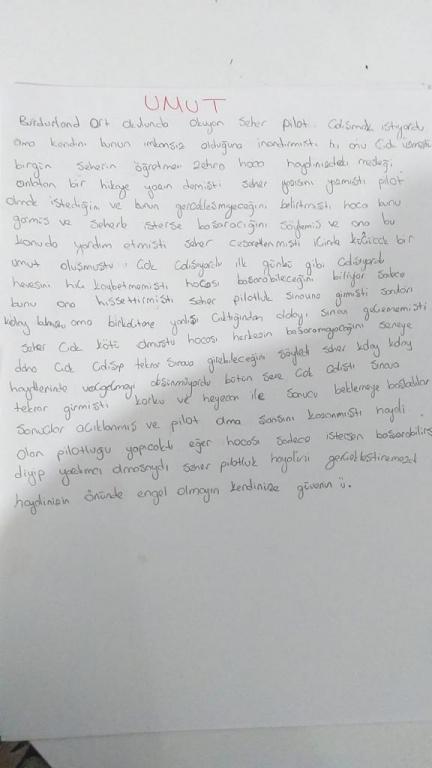 UMUT
ort okulunda okuyan Seher pilot Calışmak istiyordu
ama kendini bunun imkansız olduğuna inandırmıştı ki onu Cok
birgün Seherin öğretmen Zehra hoca mesleği
anlatan bir hikaye yazın demişti Seher yazısını yazmıştı pilot
olmak istediğin ve bunun gerçekleşmiyeceğini belirtmişti hoca bunu
görmüş ve Seherb isterse başaracığını söylemiş ve ona bu
konuda yardım etmişti Seher cesaretlenmişti icinde küçücük bir
umut oluşmuştu. Cok Calışıyordu ilk günkü gibi Calışıyordu
hevesini hiç kaybetmemişti hocası başarabileceğini biliyor sadece
bunu ona hissettirmişti Seher pilotluk Sınavına girmişti Soruları
kolay ama birkaçtane yanlışı Cıktığından dolayı sınavı geçememişti
Seher Cok kötü olmuştu hocası herkesin başaramayacağını Seneye
daha Cok Calışıp tekrar Sınava girebileceğini söyledi Seher kolay kolay
haydlerinte vazgeçmeyi düşünmüyordu bütün sene Cok Calıştı Sınava
tekrar girmişti korku ve heyecan ile Sonucu beklemeye başladılar
Sonuclar acıklanmış ve pilot olma Şansını kazanmıştı haydi
olan pilotluğu yapıcaktı eğer hocası Sadece istersen başarabilirs
diyip yardımcı olmasaydı Seher pilotluk hayalini gerçekleştiremezdi
haydinizin önünde engel olmayın kendinize güvenin ü.